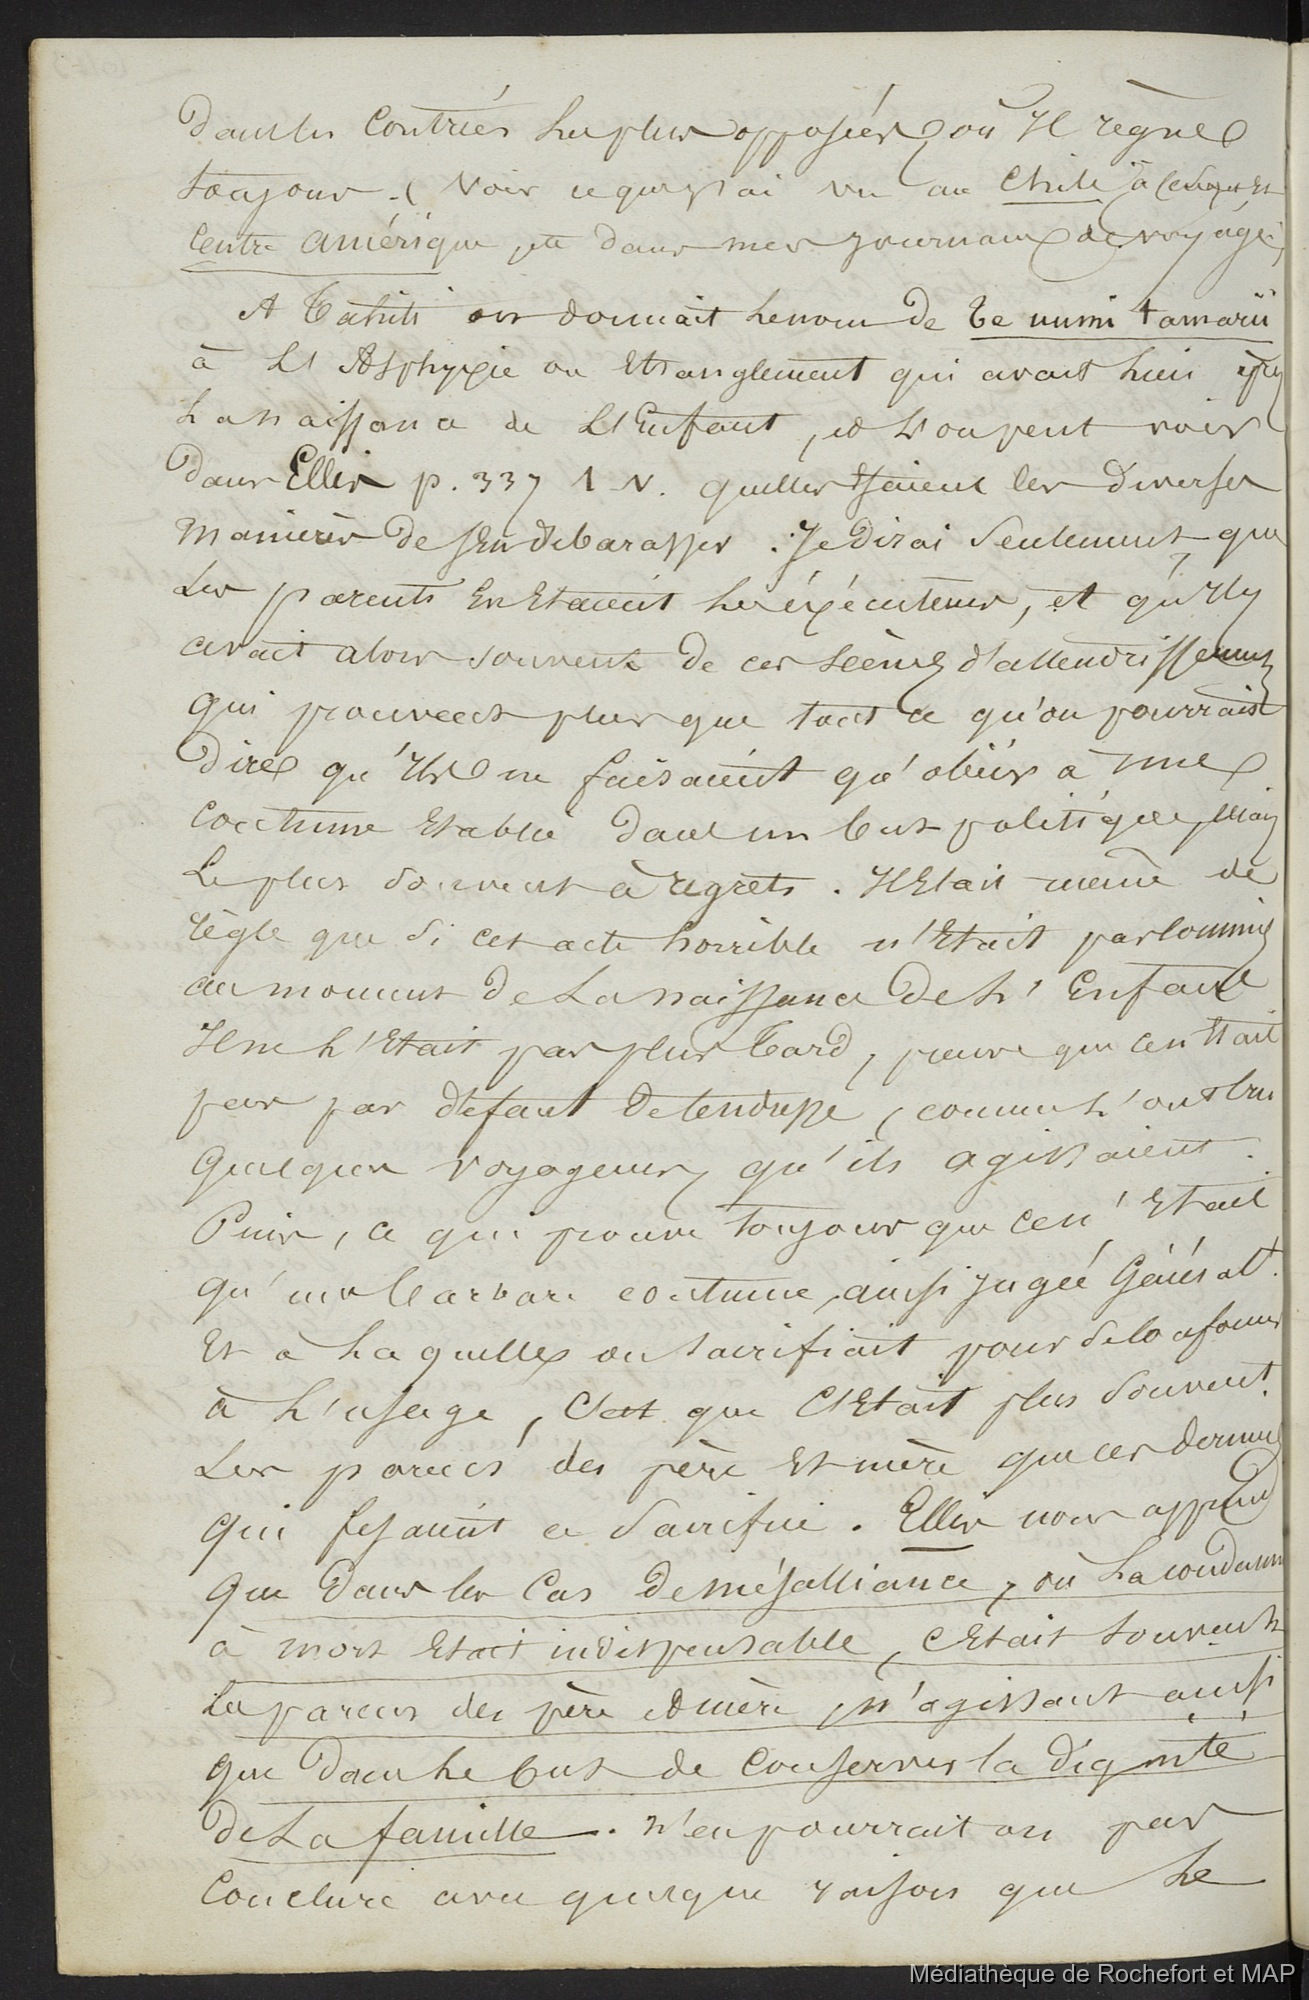 Dans les Contrées les plus opposées, où Il règne
toujours. ( Voir ce que j'ai vu au Chili, à
Centre Amérique, etc dans mes journaux de voyage,
A Tahiti on donnait le nom de te uumi tamarii
à L'Asphyxie ou Etranglement qui avait lieu
La naissance de L'Enfant, et L'on peut voir
Dans Ellis p. 337 1 V. quelles Etaient les Diverses
Manières De s'En debarasser. Je Dirai Seulement que
Les parents En Etaient les éxécuteurs, et qu'Il y
avait alors souvent de ces scènes d'attendrissement
qui prouvent plus que tout ce qu'on pourrait
Dire qu'Ils ne faisaient qu'obéir à une
Coutume Etablie dans un but politique, Mais
Le plus souvent à regrets. Il Etait même de
règle que si cet acte horrible n'Etait pas commis
au moment De La naissance De L'Enfant
Il ne L'Etait pas plus Tard, preuve que ce n'Etait
pas par défaut De tendresse, comme L'ont cru
quelques voyageurs, qu'ils agissaient.
Puis, ce qui prouve toujours que ce n'Etait
qu'une barbare coutume, ainsi jugée Générale.t
Et à Laquelle on sacrifiait pour se conformer
à L'usage, C'est que C'Etait plus souvent
Les parents des père Et mère que ces derniers
qui fesaient ce Sacrifice. Ellis nous apprend
que Dans les Cas De mésalliance, où La condamn
à mort Etait indispensable, C'Etait souvent
Les parents des père et mère, n'agissant ainsi
que Dans Le but de Conserver la dignité
De La famille. N'en pourrait on pas
Conclure avec quelque raison que Le
Médiathèque de Rochefort et MAP